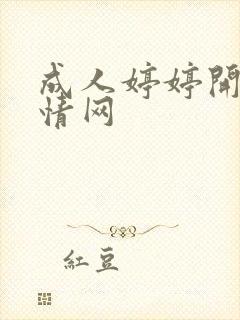 成人婷婷開
情网
紅豆